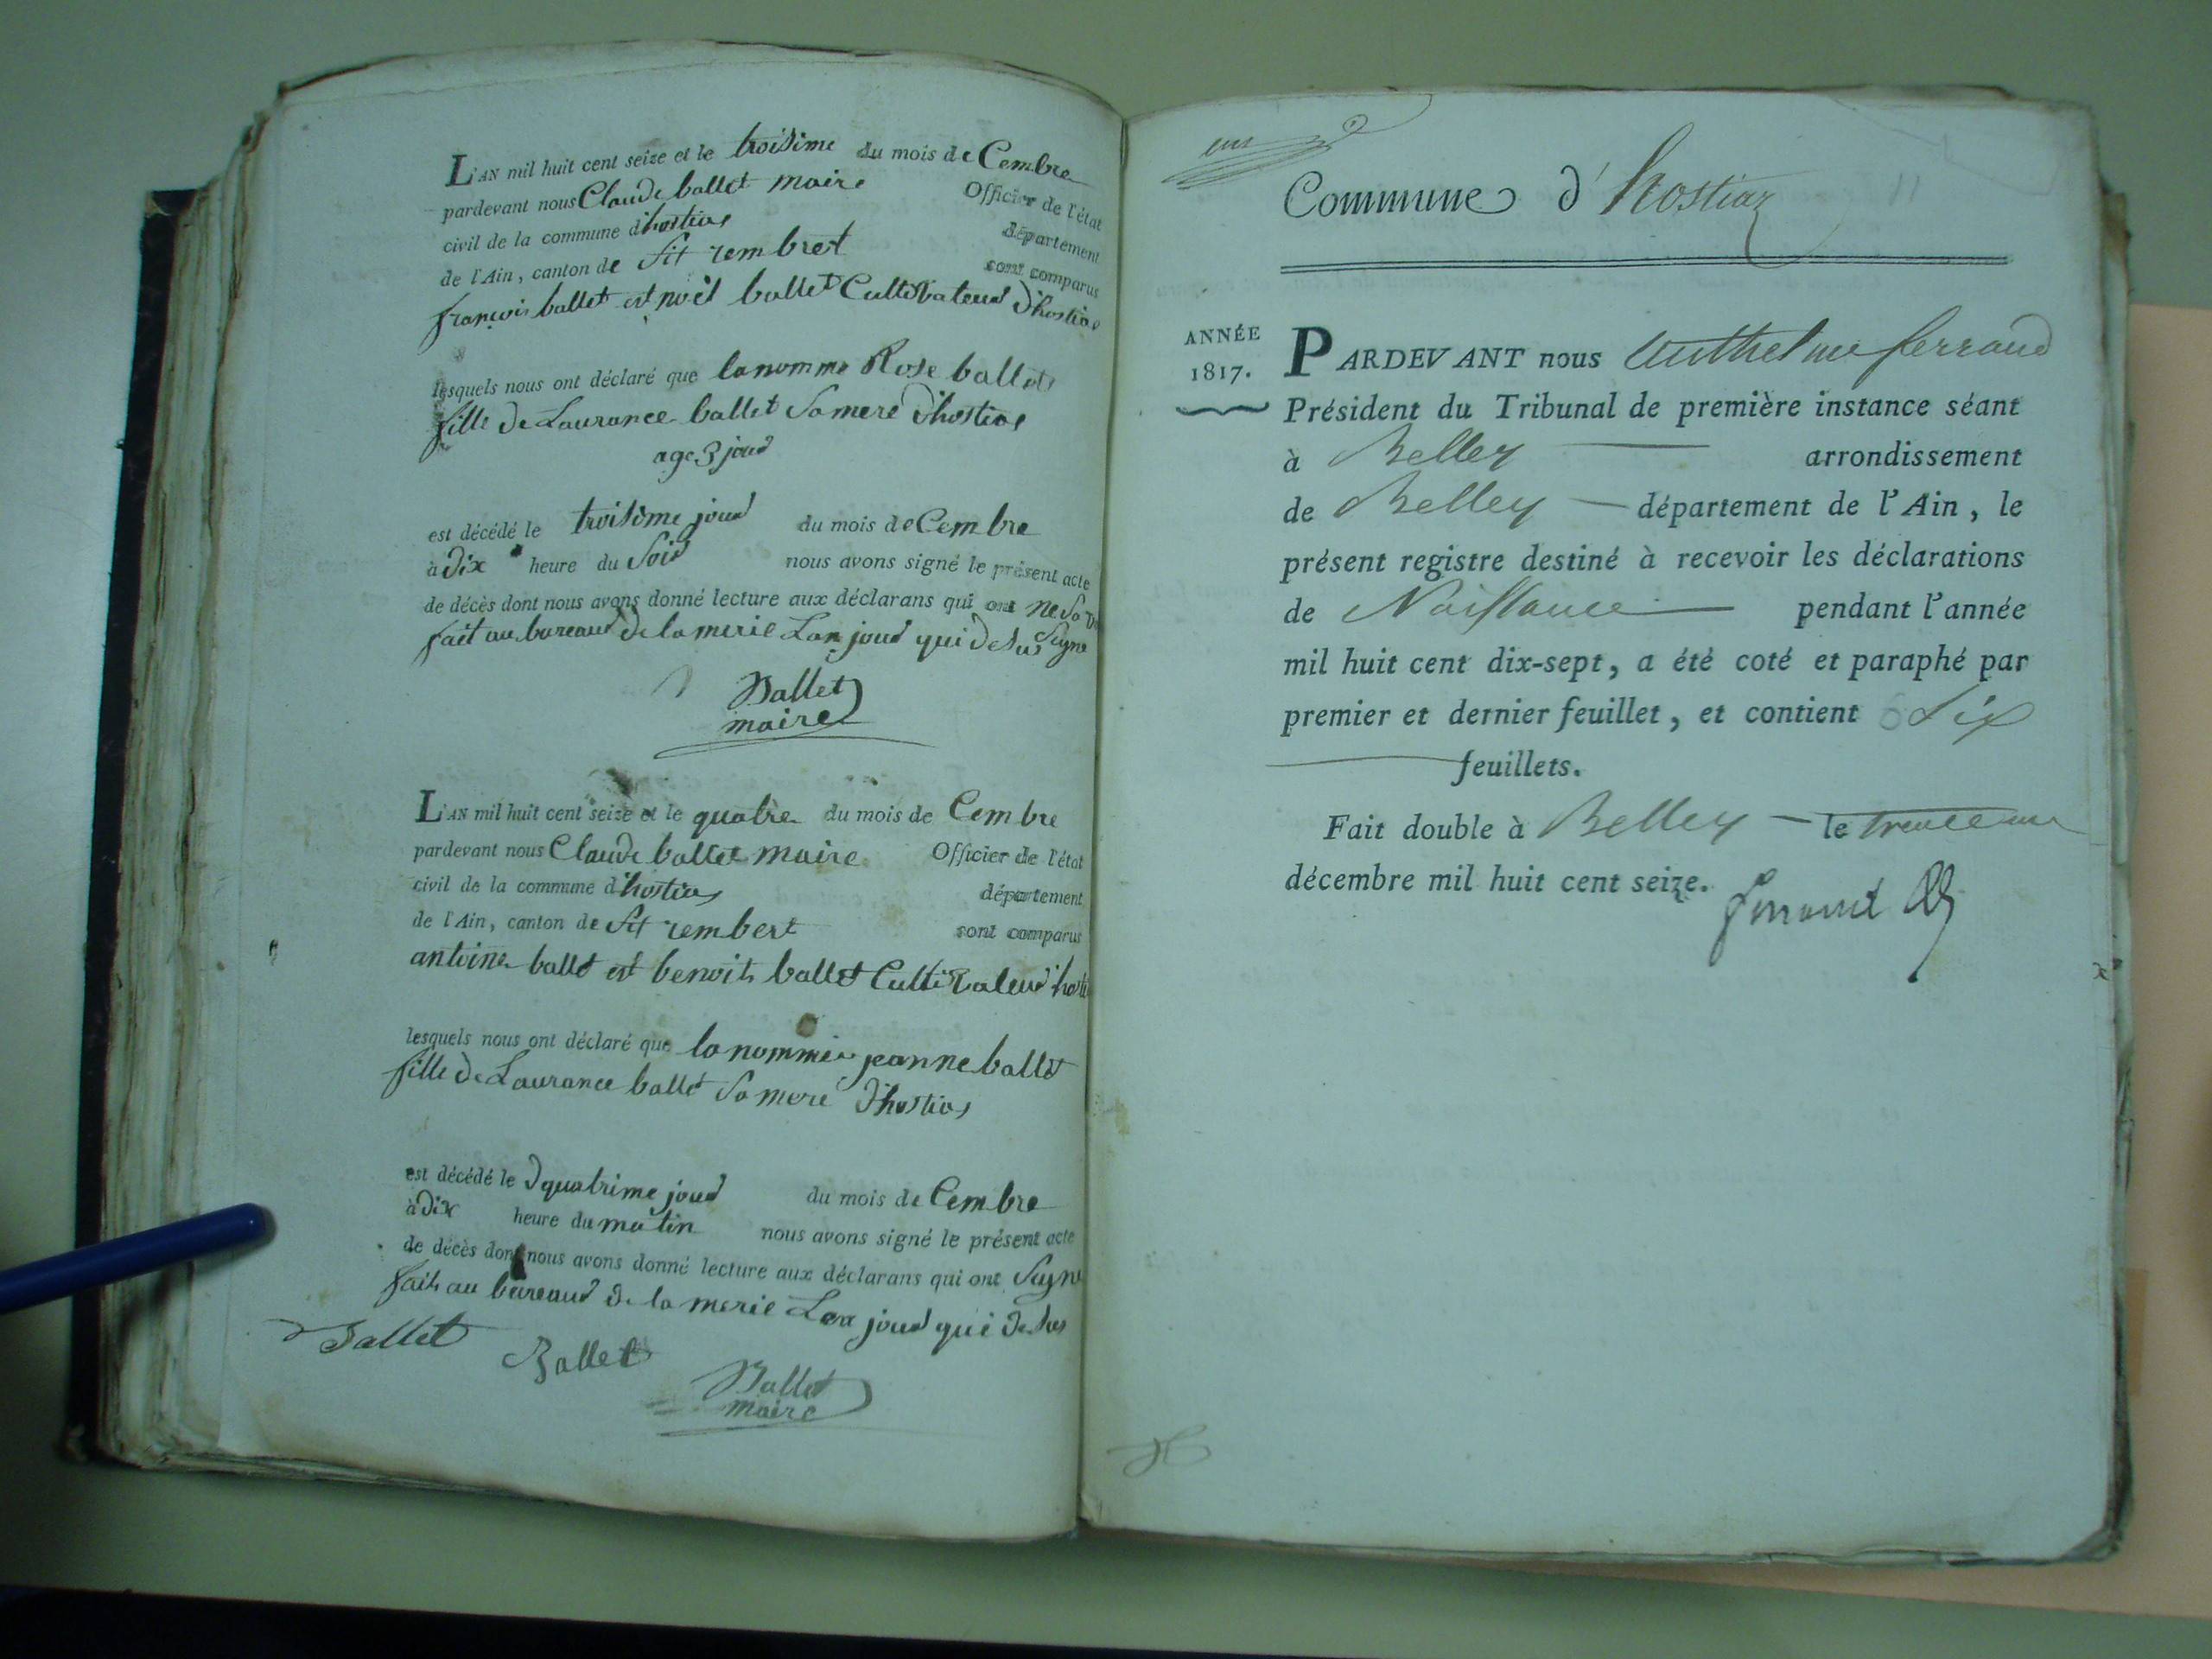 L'AN mil huit cent seize et le troisime du mois de Cembre
pardevant nous Claude ballet maire Officier de l'état
civil de la commune d'hostias département
de l'Ain, canton de st rembret sont comparus
françois ballet est noël ballet Cultivateur d'hostias
lesquels nous ont déclaré que la nomme Rose ballet
fille de Laurance ballet sa mere d'hostias
age 3 jour
est décédé le troisime jour du mois de Cembre
à dix heure du soir nous avons signé le présent acte
de décès dont nous avons donné lecture aux déclarans qui ont ne sa
fait au bureaud de la merie Lan jour qui desus signe
Ballet
maire
L'AN mil huit cent seize et le quatre du mois de Cembre
pardevant nous Claude ballet maire Officier de l'état
civil de la commune d'hostias département
de l'Ain, canton de st rembert sont comparus
antoine ballet est benoit ballet Cultivateur
lesquels nous ont déclaré que la nommée jeanne ballet
fille de Laurance ballet sa mere d'hostias
est décédé le quatrime jour du mois de Cembre
à dix heure du matin nous avons signé le présent acte
de décès dont nous avons donné lecture aux déclarans qui ont signe
fait au bureaud de la merie Lan jour qui desus
Ballet Ballet
Ballet
maire
Commune d'hostiaz
ANNÉE
1817.
PARDEVANT nous Anthelme ferrand
Président du Tribunal de première instance séant
à Belley arrondissement
de Belley département de l'Ain, le
présent registre destiné à recevoir les déclarations
de Naissance pendant l'année
mil huit cent dix-sept, a été coté et paraphé par
premier et dernier feuillet, et contient six
feuillets.
Fait double à Belley le trente un
décembre mil huit cent seize.